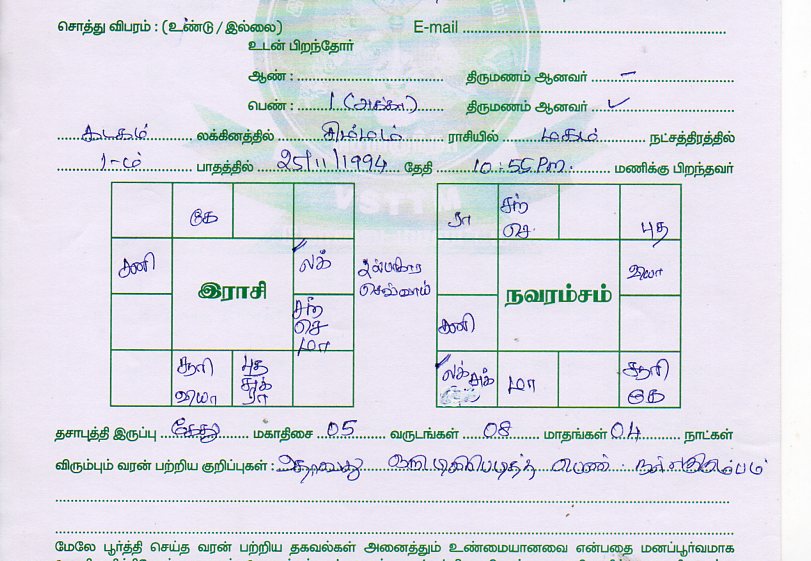 சொத்து விபரம் : (உண்டு / இல்லை) E-mail
உடன் பிறந்தோர்
ஆண் : திருமணம் ஆனவர் –
பெண் : 1 (அக்கா) திருமணம் ஆனவர் ✓
கடகம் லக்கினத்தில் சிம்மம் ராசியில் மகம் நட்சத்திரத்தில்
1-ம் பாதத்தில் 25/11/1994 தேதி 10:55 P.m. மணிக்கு பிறந்தவர்
கே
சனி
லக்
இராசி
சந்
செ
மா
சூரி
வியா
புத
சுக்
ரா
செவ்வாய்
ரா
சந்
செ
புத
வியா
நவாம்சம்
சனி
லக் சுக்
மா
சூரி
கே
தசாபுத்தி இருப்பு கேது மகாதிசை 05 வருடங்கள் 08 மாதங்கள் 04 நாட்கள்
விரும்பும் வரன் பற்றிய குறிப்புகள் : ஏதாவது டிகிரி படித்த பெண். நல்ல குடும்பம்
மேலே பூர்த்தி செய்த வரன் பற்றிய தகவல்கள் அனைத்தும் உண்மையானவை என்பதை மனப்பூர்வமாக